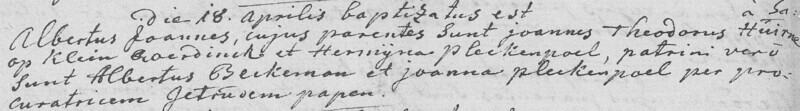 Die 18. aprilis baptizatus est
Albertus Joannes, cujus parentes sunt joannes Theodorus Hüirne
op Klein Goerdinck et Hermijna pleckenpoel, patrini verò
sunt Albertus Beckeman et joanna pleckenpoel per pro-
curatricem Jetrudem papen.